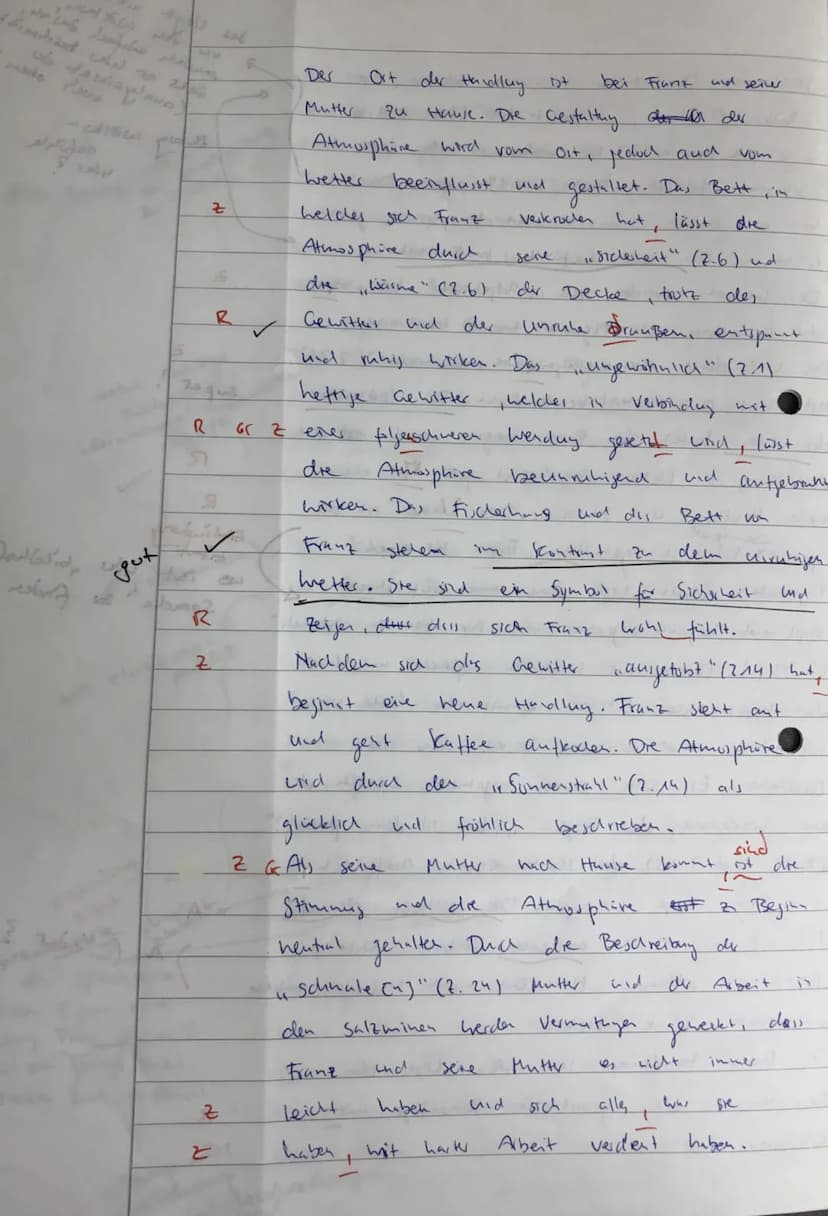 Der Ort der Handlung ist bei Franz und seiner
Mutter zu Hause. Die Gestaltung der
Atmosphäre wird vom Ort, jedoch auch vom
Wetter beeinflusst und gestaltet. Das Bett, in
Z welches sich Franz verkrochen hat, lässt die
Atmosphäre durch seine „Sicherheit" (Z.6) und
die „Wärme" (Z.6) der Decke, trotz des
R ✓ Gewitters und der Unruhe draußen, entspannt
und ruhig wirken. Das „ungewöhnlich" (Z.1)
heftige Gewitter, welches in Verbindung mit
R Gr Z einer folgenschweren Wendung gesetzt wird, lässt
die Atmosphäre beunruhigend und aufgebracht
wirken. Das Fischerhaus und das Bett von
gut ✓ Franz stehen im Kontrast zu dem unruhigen
Wetter. Sie sind ein Symbol für Sicherheit und
R zeigen, dass sich Franz wohl fühlt.
Z Nachdem sich das Gewitter „ausgetobt" (Z.14) hat,
beginnt eine neue Handlung. Franz steht auf
und geht Kaffee aufkochen. Die Atmosphäre
wird durch den „Sonnenstrahl" (Z.14) als
glücklich und fröhlich beschrieben.
sind
Z G Als seine Mutter nach Hause kommt, ist die
Stimmung und die Atmosphäre zu Beginn
neutral gehalten. Durch die Beschreibung der
„schmale[n]" (Z.24) Mutter und der Arbeit in
den Salzminen werden Vermutungen geweckt, dass
Franz und seine Mutter es nicht immer
Z leicht haben und sich alles, was sie
Z haben, mit harter Arbeit verdient haben.